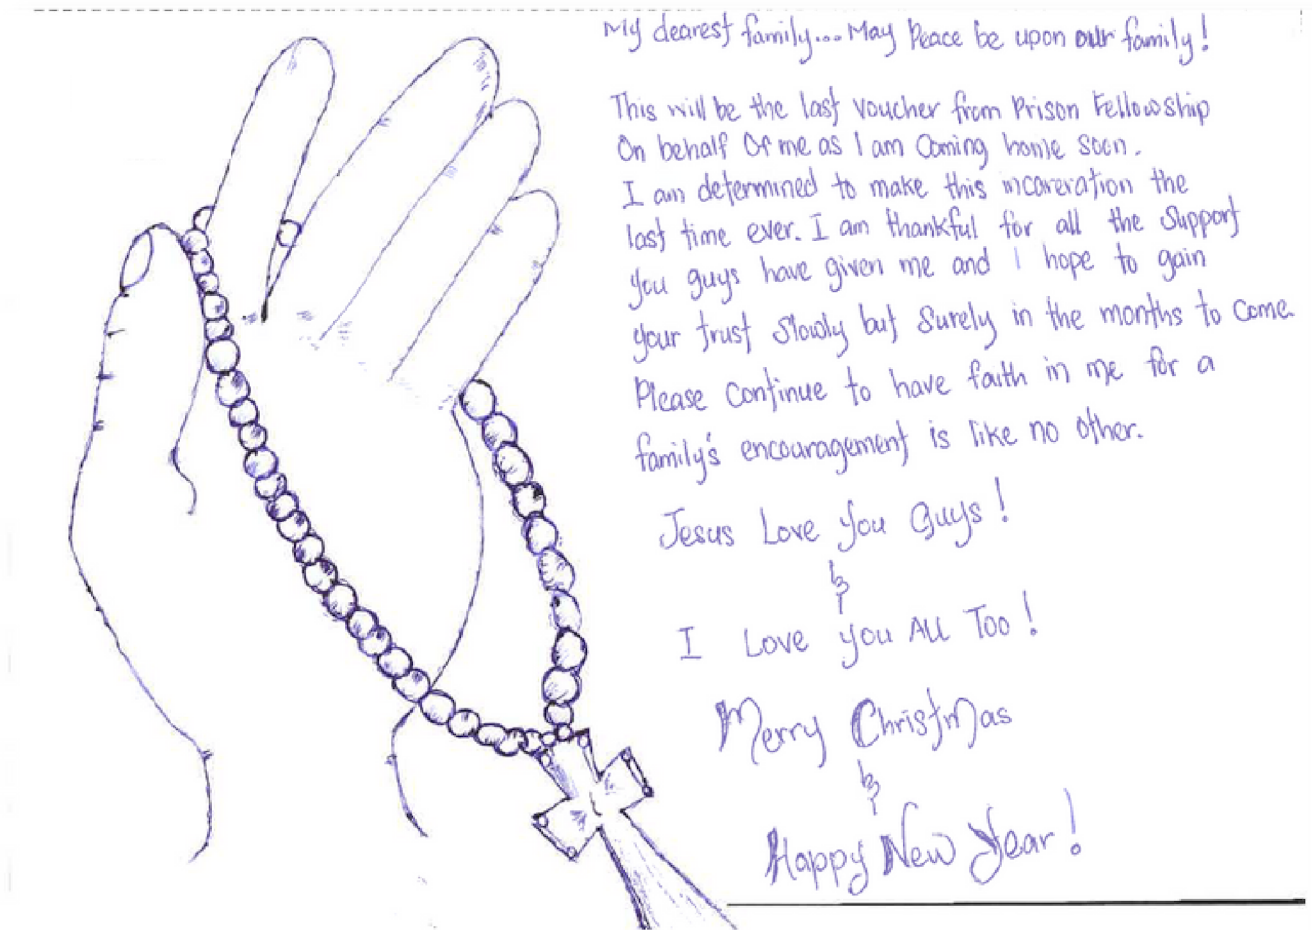 My dearest family... May Peace be upon our family!
This will be the last voucher from Prison Fellowship
On behalf Of me as I am Coming home soon.
I am determined to make this incareration the
last time ever. I am thankful for all the Support
you guys have given me and I hope to gain
your trust Slowly but Surely in the months to come.
Please continue to have faith in me for a
family's encouragement is like no other.
Jesus Love You Guys!
&
I Love you All Too!
Merry Christmas
&
Happy New Year!